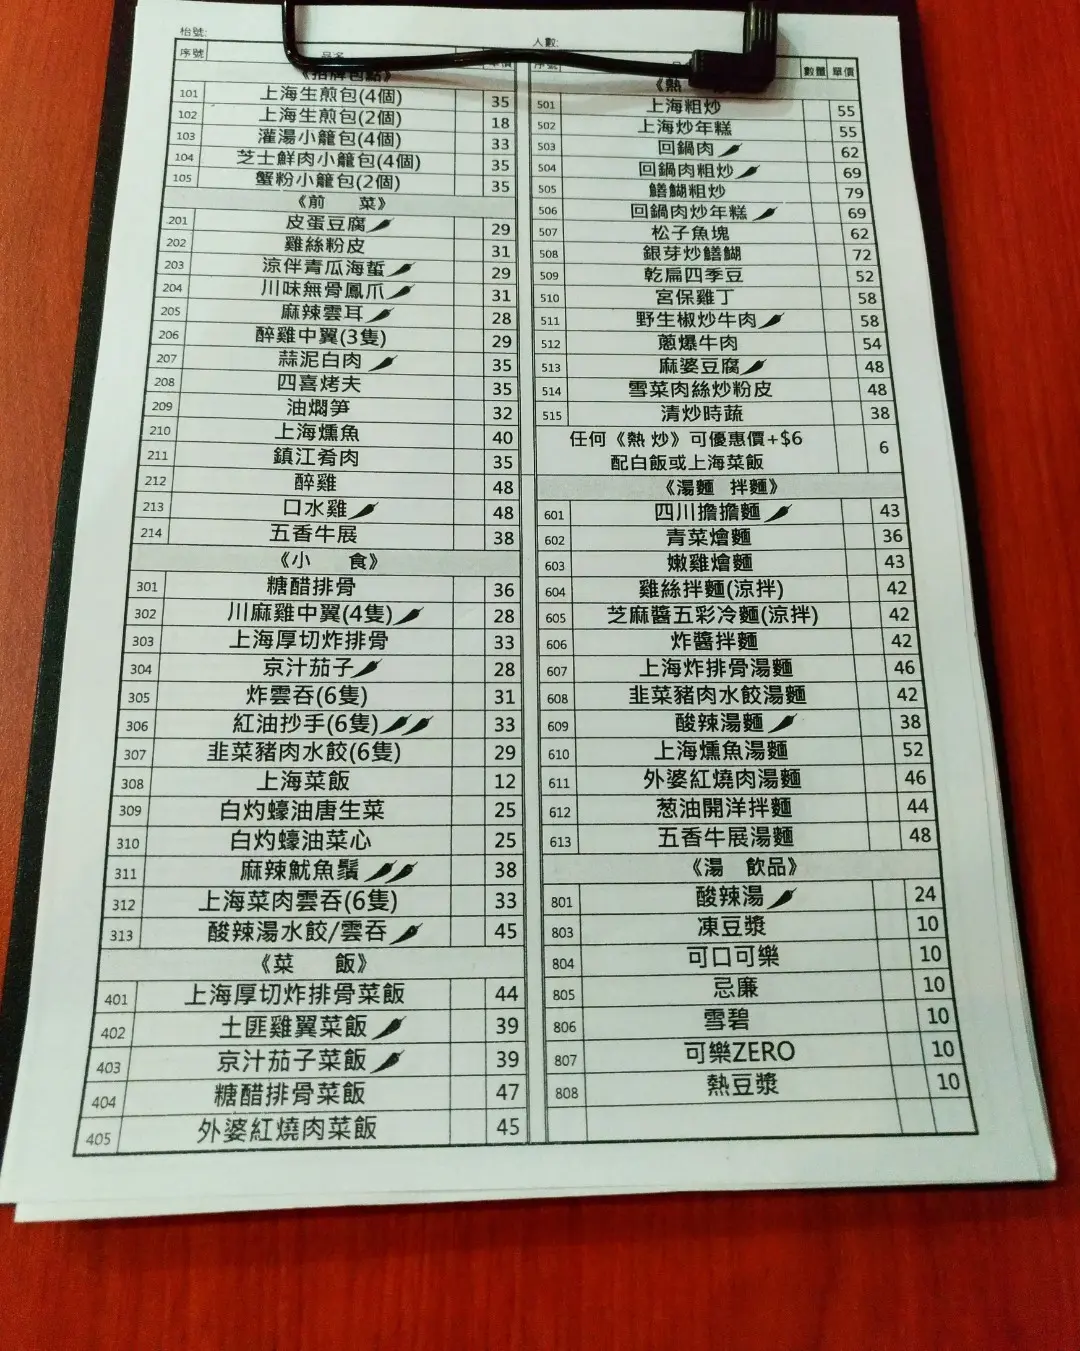 枱號:
人數:
序號
數量 單價
《招牌包點》
101 上海生煎包(4個) 35
102 上海生煎包(2個) 18
103 灌湯小籠包(4個) 33
104 芝士鮮肉小籠包(4個) 35
105 蟹粉小籠包(2個) 35
《前 菜》
201 皮蛋豆腐 29
202 雞絲粉皮 31
203 涼伴青瓜海蜇 29
204 川味無骨鳳爪 31
205 麻辣雲耳 28
206 醉雞中翼(3隻) 29
207 蒜泥白肉 35
208 四喜烤夫 35
209 油燜笋 32
210 上海燻魚 40
211 鎮江肴肉 35
212 醉雞 48
213 口水雞 48
214 五香牛展 38
《小 食》
301 糖醋排骨 36
302 川麻雞中翼(4隻) 28
303 上海厚切炸排骨 33
304 京汁茄子 28
305 炸雲吞(6隻) 31
306 紅油抄手(6隻) 33
307 韭菜豬肉水餃(6隻) 29
308 上海菜飯 12
309 白灼蠔油唐生菜 25
310 白灼蠔油菜心 25
311 麻辣魷魚鬚 38
312 上海菜肉雲吞(6隻) 33
313 酸辣湯水餃/雲吞 45
《菜 飯》
401 上海厚切炸排骨菜飯 44
402 土匪雞翼菜飯 39
403 京汁茄子菜飯 39
404 糖醋排骨菜飯 47
405 外婆紅燒肉菜飯 45
《熱
501 上海粗炒 55
502 上海炒年糕 55
503 回鍋肉 62
504 回鍋肉粗炒 69
505 鱔糊粗炒 79
506 回鍋肉炒年糕 69
507 松子魚塊 62
508 銀芽炒鱔糊 72
509 乾扁四季豆 52
510 宮保雞丁 58
511 野生椒炒牛肉 58
512 蔥爆牛肉 54
513 麻婆豆腐 48
514 雪菜肉絲炒粉皮 48
515 清炒時蔬 38
任何《熱 炒》可優惠價+$6 6
配白飯或上海菜飯
《湯麵 拌麵》
601 四川擔擔麵 43
602 青菜燴麵 36
603 嫩雞燴麵 43
604 雞絲拌麵(涼拌) 42
605 芝麻醬五彩冷麵(涼拌) 42
606 炸醬拌麵 42
607 上海炸排骨湯麵 46
608 韭菜豬肉水餃湯麵 42
609 酸辣湯麵 38
610 上海燻魚湯麵 52
611 外婆紅燒肉湯麵 46
612 葱油開洋拌麵 44
613 五香牛展湯麵 48
《湯 飲品》
801 酸辣湯 24
803 凍豆漿 10
804 可口可樂 10
805 忌廉 10
806 雪碧 10
807 可樂ZERO 10
808 熱豆漿 10